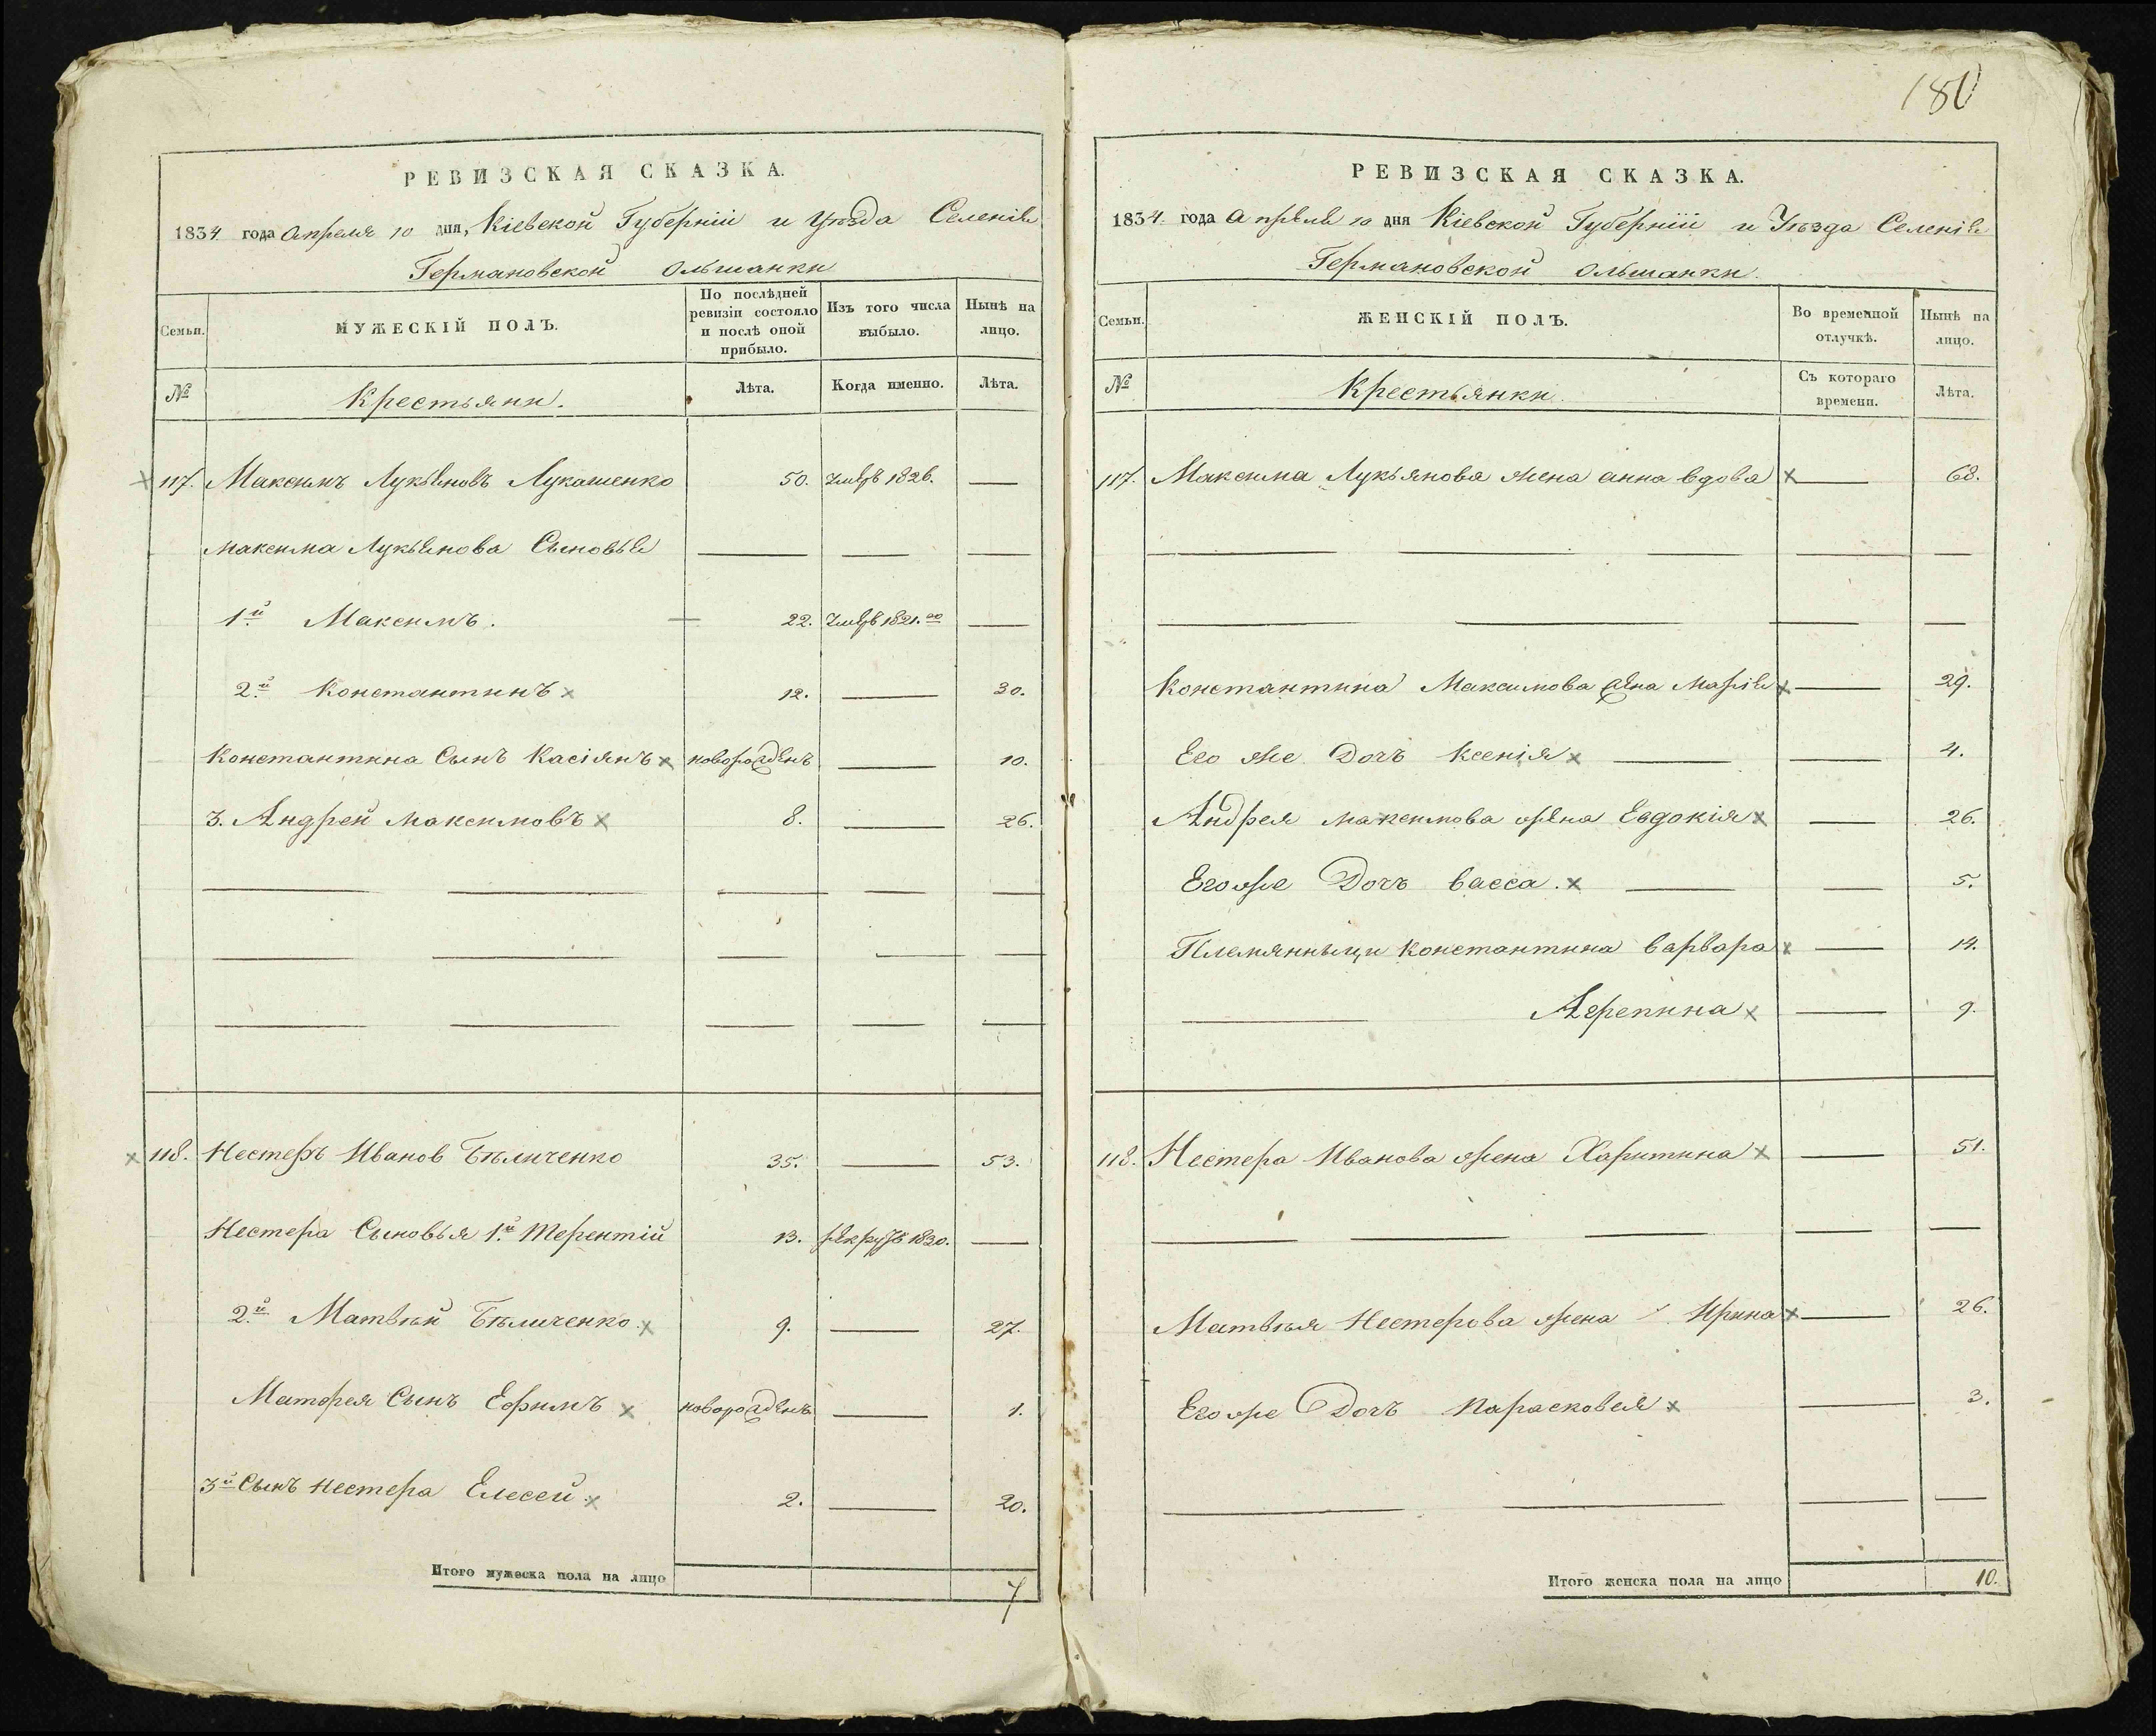 181
РЕВИЗСКАЯ СКАЗКА.
1834 года Апреля 10 дня, Кіевской Губерніи и Уѣзда Селенія
Германовской Ольшанки
Семьи.
МУЖЕСКІЙ ПОЛЪ.
По послѣдней ревизіи состояло и послѣ оной прибыло.
Изъ того числа выбыло.
Нынѣ на лицо.
№
Крестьяни.
Лѣта.
Когда именно.
Лѣта.
117. Максимъ Лукьяновъ Лукашенко 50. Умеръ 1826. —
Максима Лукьянова Сыновья — — —
1й Максимъ. — 22. Умеръ 1821.го —
2й Константинъ x 12. — 30.
Константина Сынъ Касіянъ x новорожденъ — 10.
3. Андрей Максимовъ x 8. — 26.
118. Нестеръ Иванов Бѣличенко 35. — 53.
Нестера Сыновья 1й Терентій 13. рекрутъ 1830. —
2й Матвѣй Бѣличенко x 9. — 27.
Матфея Сынъ Ефимъ x новорожденъ — 1.
3й Сынъ Нестера Елесей x 2. — 20.
Итого мужеска пола на лицо 7
РЕВИЗСКАЯ СКАЗКА.
1834 года Апреля 10 дня Кіевской Губерніи и Уѣзда Селенія
Германовской Ольшанки.
Семьи.
ЖЕНСКІЙ ПОЛЪ.
Во временной отлучкѣ.
Нынѣ на лицо.
№
Крестьянки.
Съ котораго времени.
Лѣта.
117. Максима Лукьянова жена анна вдова x — 68.
Константина Максимова жена Марія x — 29.
Его же Дочъ Ксенія x — 4.
Андрея Максимова жена Евдокія x — 26.
Его же Дочъ васса. x — 5.
Племянныци Константина варвара x — 14.
— Агрепина x — 9.
118. Нестера Иванова жена Харитина x — 51.
Матвѣя Нестерова жена Ирина x — 26.
Его же Дочъ Парасковея x — 3.
Итого женска пола на лицо 10.